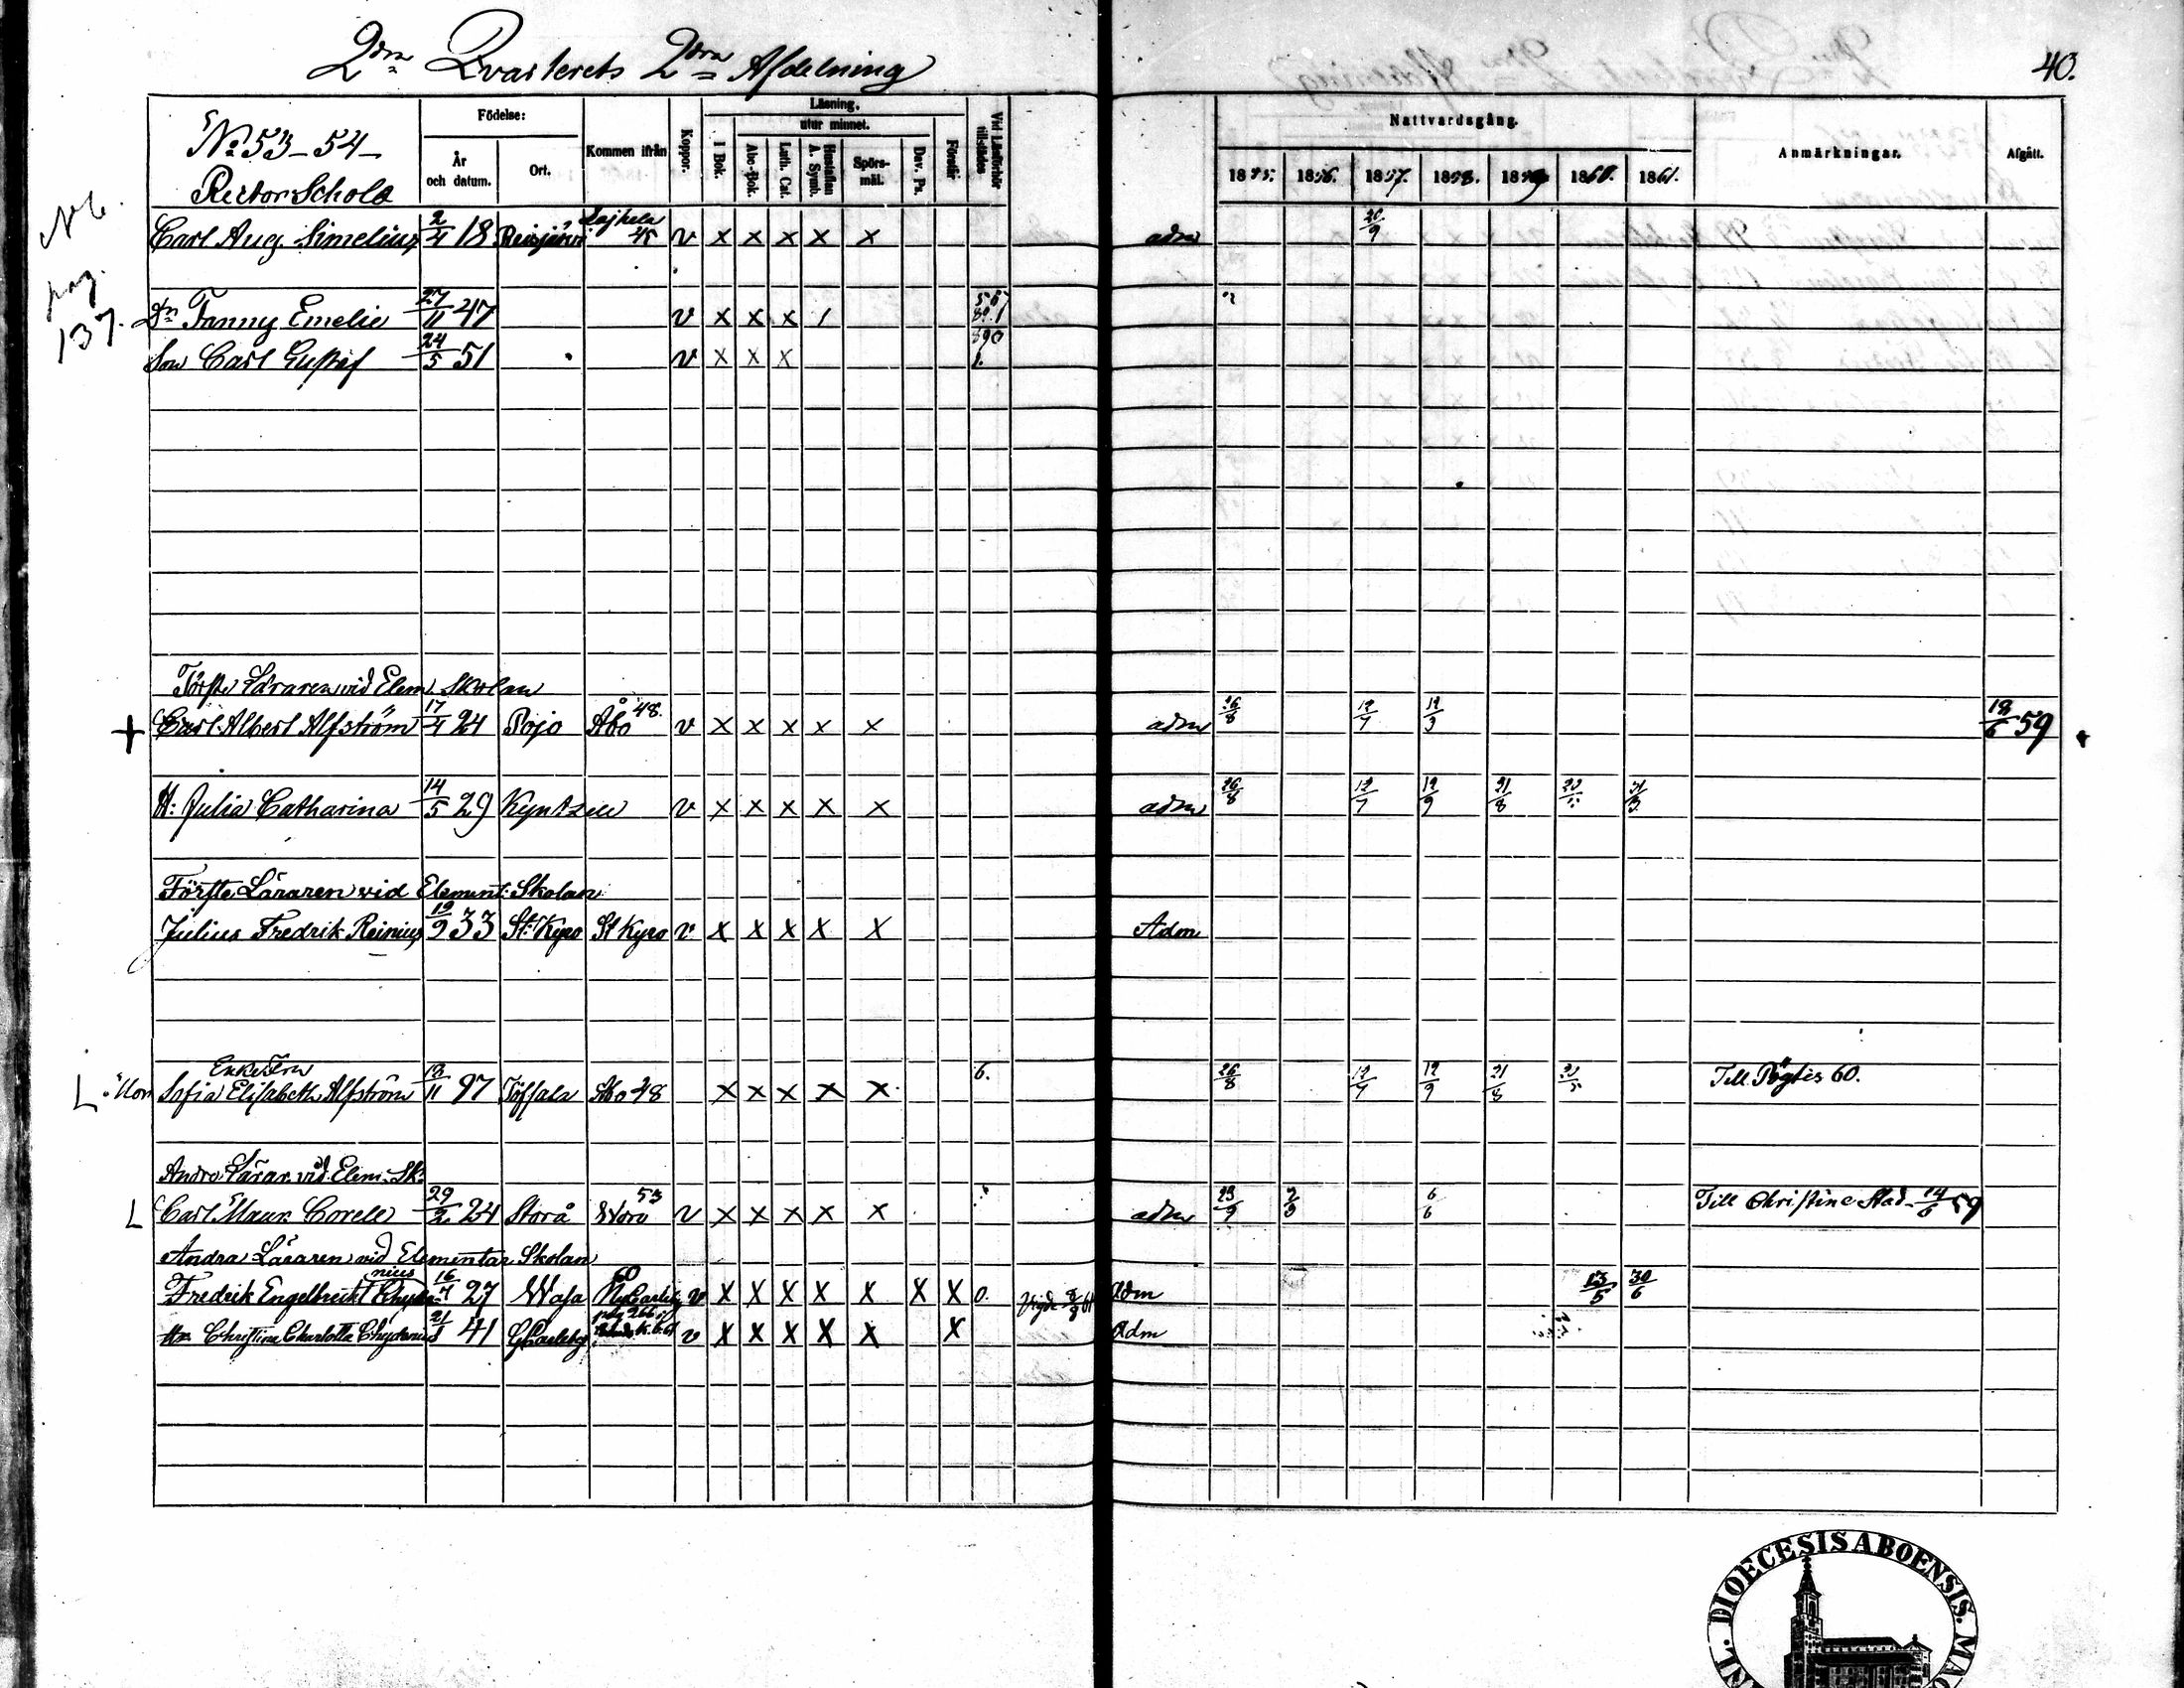 2dra Qvarterets 2dra Afdelning
40.
No 53-54-
Rector Schola
Födelse:
År och datum.
Ort.
Kommen ifrån
Koppor.
Läsning,
utur minnet.
I Bok.
Abc-Bok.
Luth. Cat.
Hustaflan A. Symb.
Spörsmål.
Dav. Ps.
Förstår
Vid Läsförhör tillstädes
Nattvardsgång.
1855. 1856. 1857. 1858. 1859 1860. 1861.
Anmärkningar.
Afgått.
Nb. pag. 137.
Carl Aug. Simelius 2/4 18 Reisjärvi Lajhela 45 v x x x x x adm 20/9
Dr Fanny Emelie 27/11 47 v x x x /
Son Carl Gustaf 24/5 51 v x x x
Förste Läraren vid Elem. Skolan
+ Carl Albert Alfström 17/4 24 Pojo Åbo 48. v x x x x x adm 26/8 12/7 18/6 59
H: Julia Catharina 14/5 29 v x x x x x adm 26/8 12/7 12/9 21/8
Förste Läraren vid Element: Skolan
Julius Fredrik Reinius 19/9 33 St: Kyro St Kyro v x x x x x Adm
Enke Fru
L Sofia Elisabeth Alfström 11 97 Åbo 48 x x x x x 6. 26/8 12/7 12/9 21/8 Till 60.
Andre Lärar. vid Elem. Sk:
L Carl Maur. Corell 29/2 24 Storå Wörå 53 v x x x x x adm 6/6 Till Christine Stad 14/6 59
Andra Läraren vid Elementar Skolan
Fredrik Engelbrekt Chydenius 16/4 27 Wasa Ny Carleby 60 v X X X X X X X 0. Vigde adm 13/5 30/6
Christina Charlotta Chydenius 21/8 41 GCarleby pag 266 v X X X X X X Adm
DIOECESIS ABOENSIS.